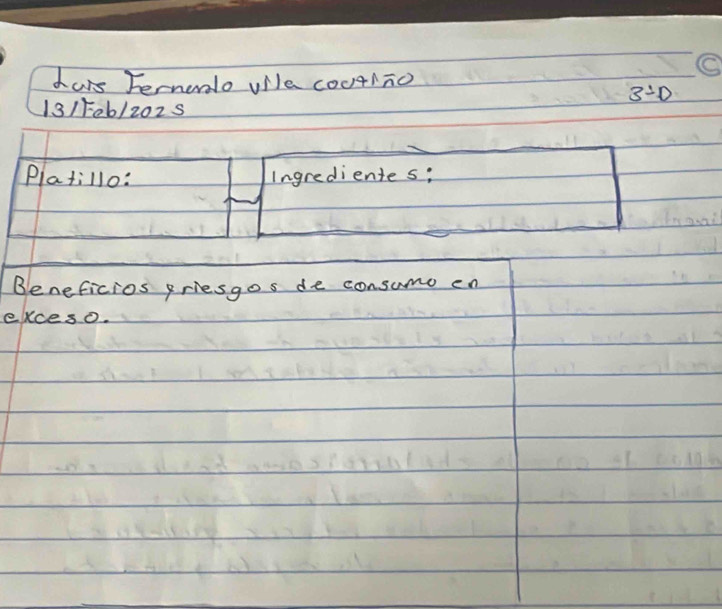 Luis Fernando villa coutiño
13/Feb/2025
3-D
Platillo:
Ingredientes:
Beneficios y riesgos de consumo en
exceso.